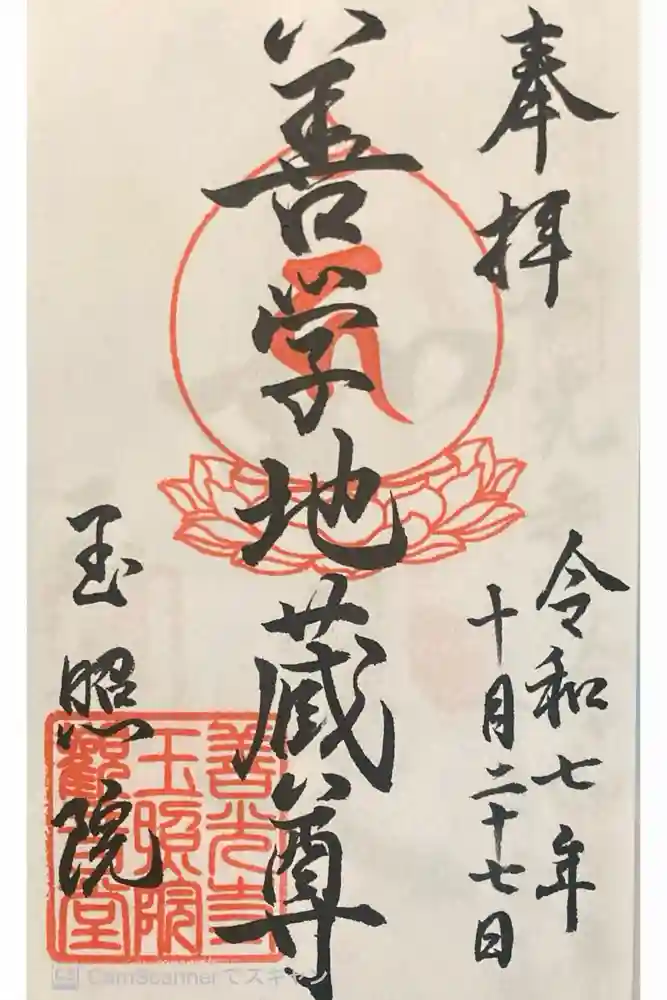 奉拝
令和七年
十月二十七日
善学地蔵尊
玉照院
善光寺
玉照院
観音堂
CamScannerでスキャン